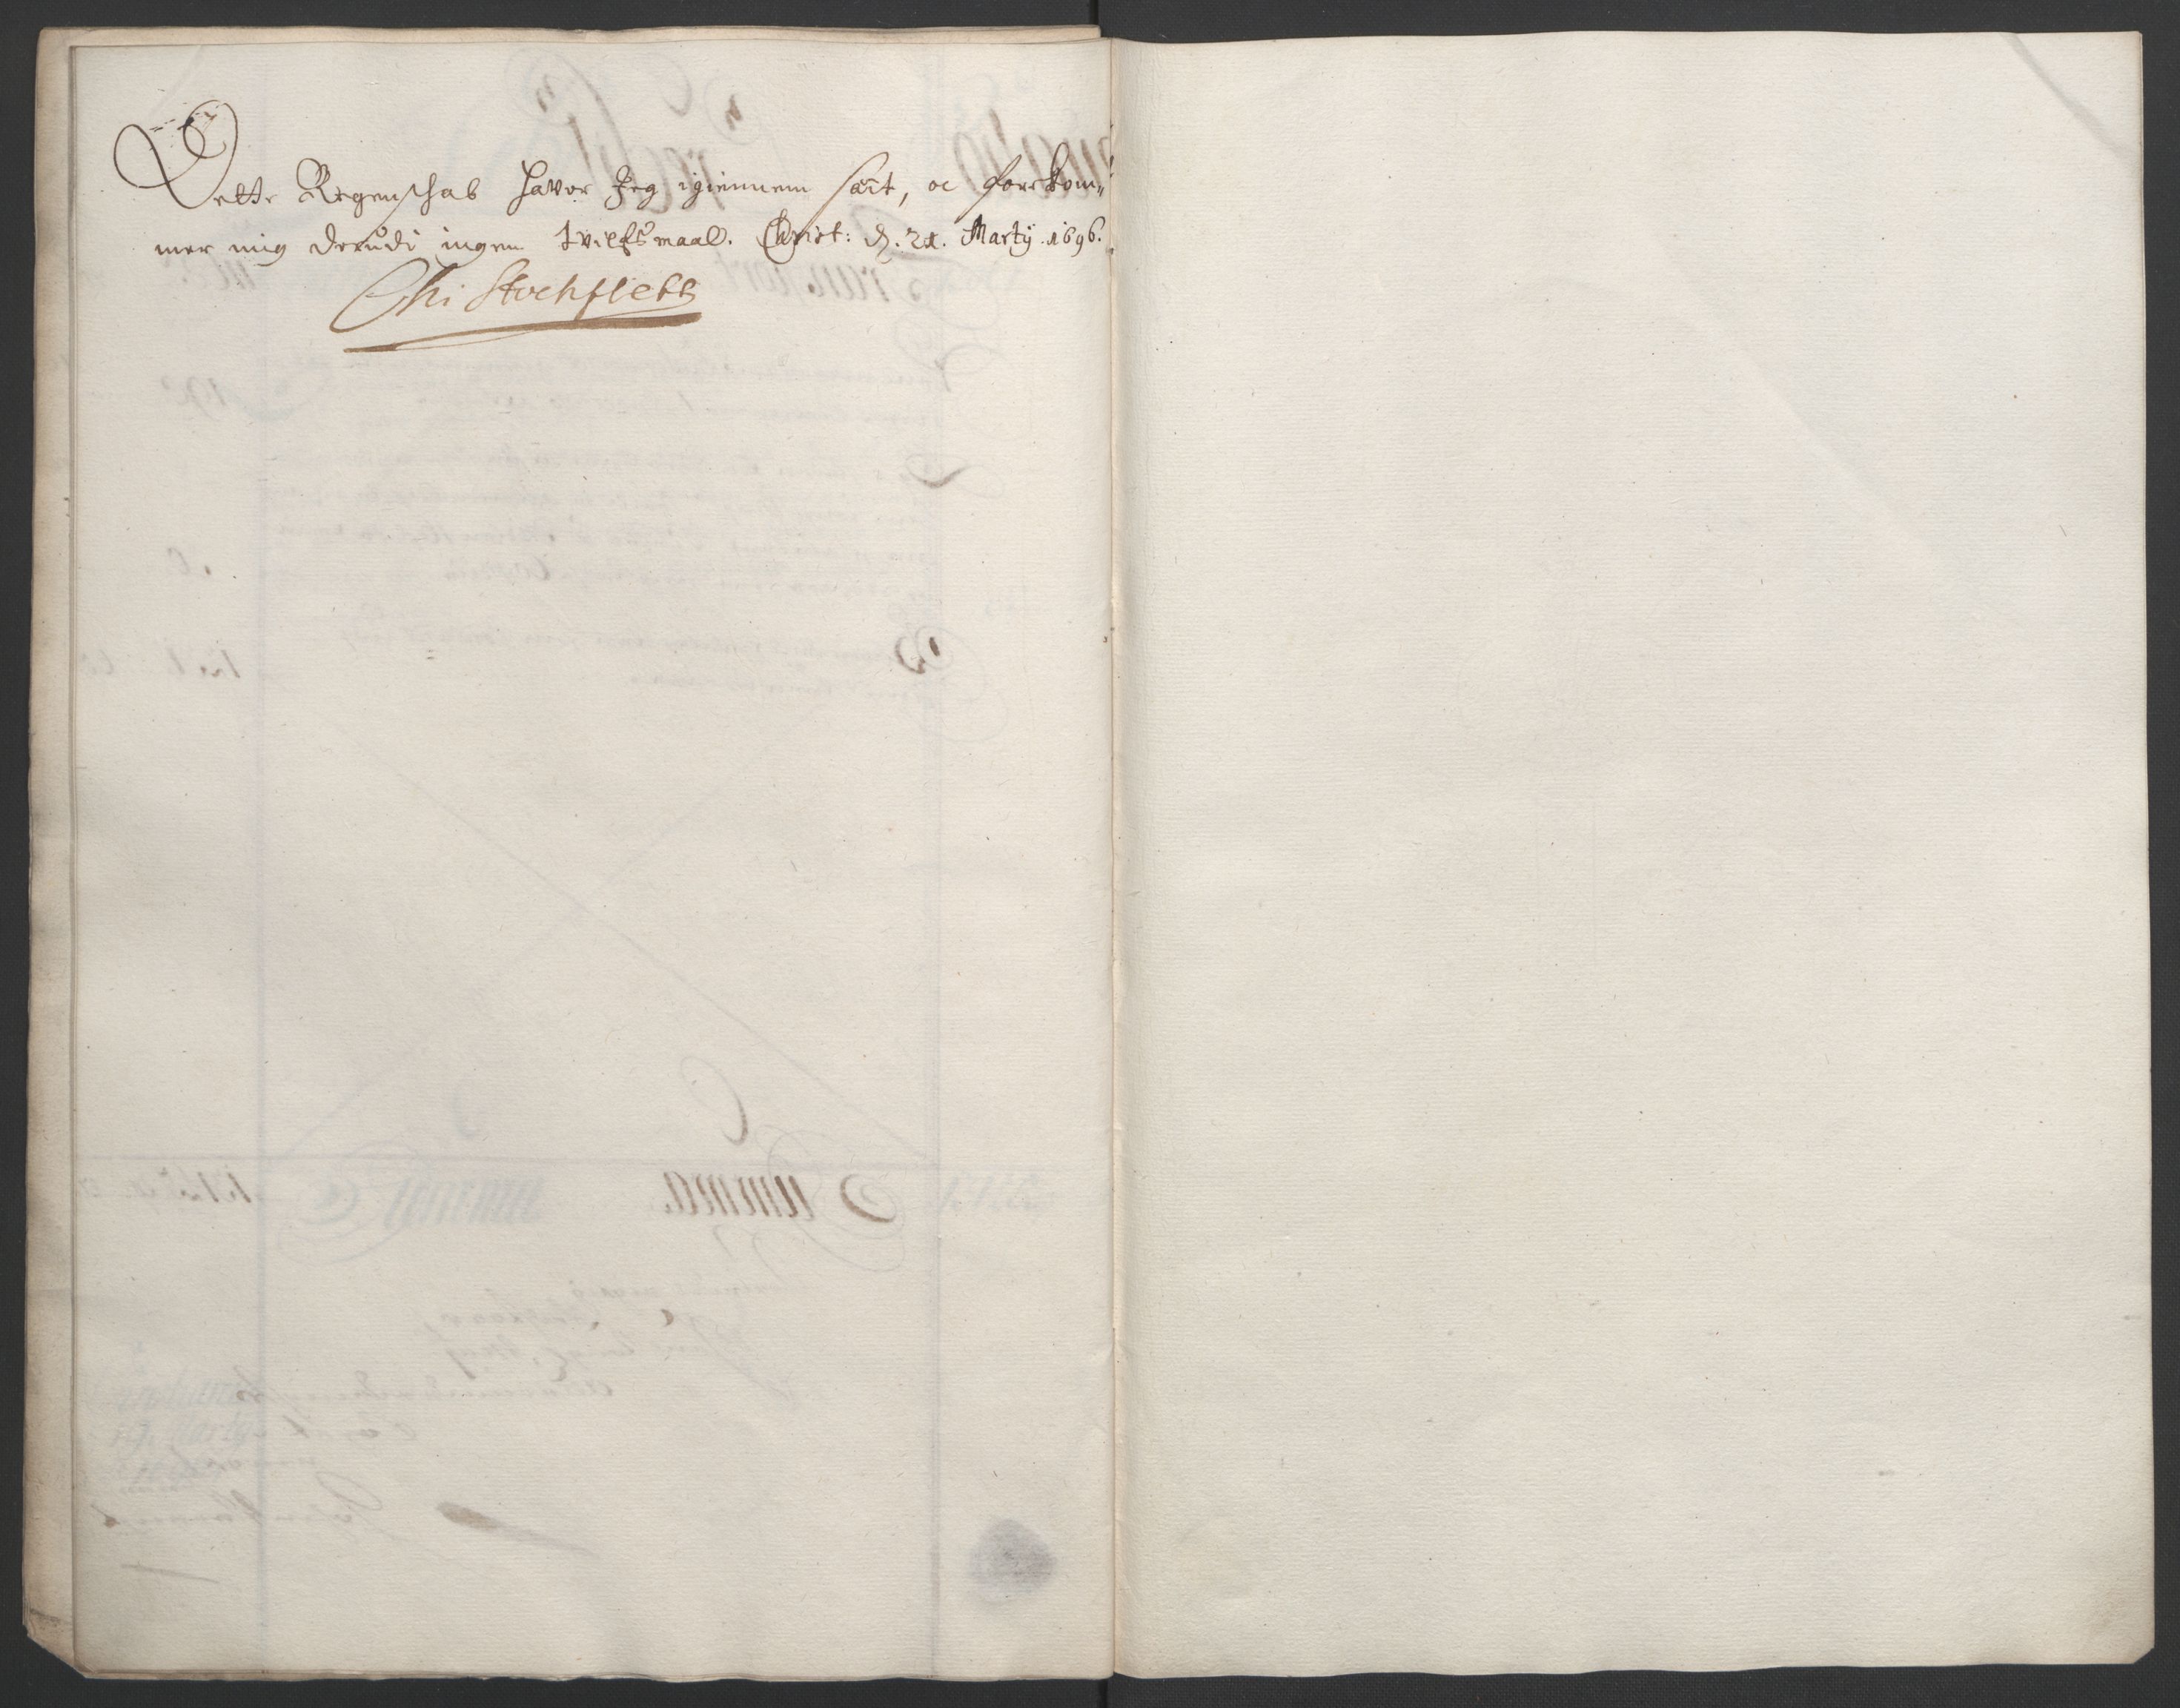 Dette Regenschab hafver Jeg igiennem sært, oc forekom„
mer mig derudi ingen tvilfsmaal. Christ: d. 21. Martij 1696.
Chi Stockfleth